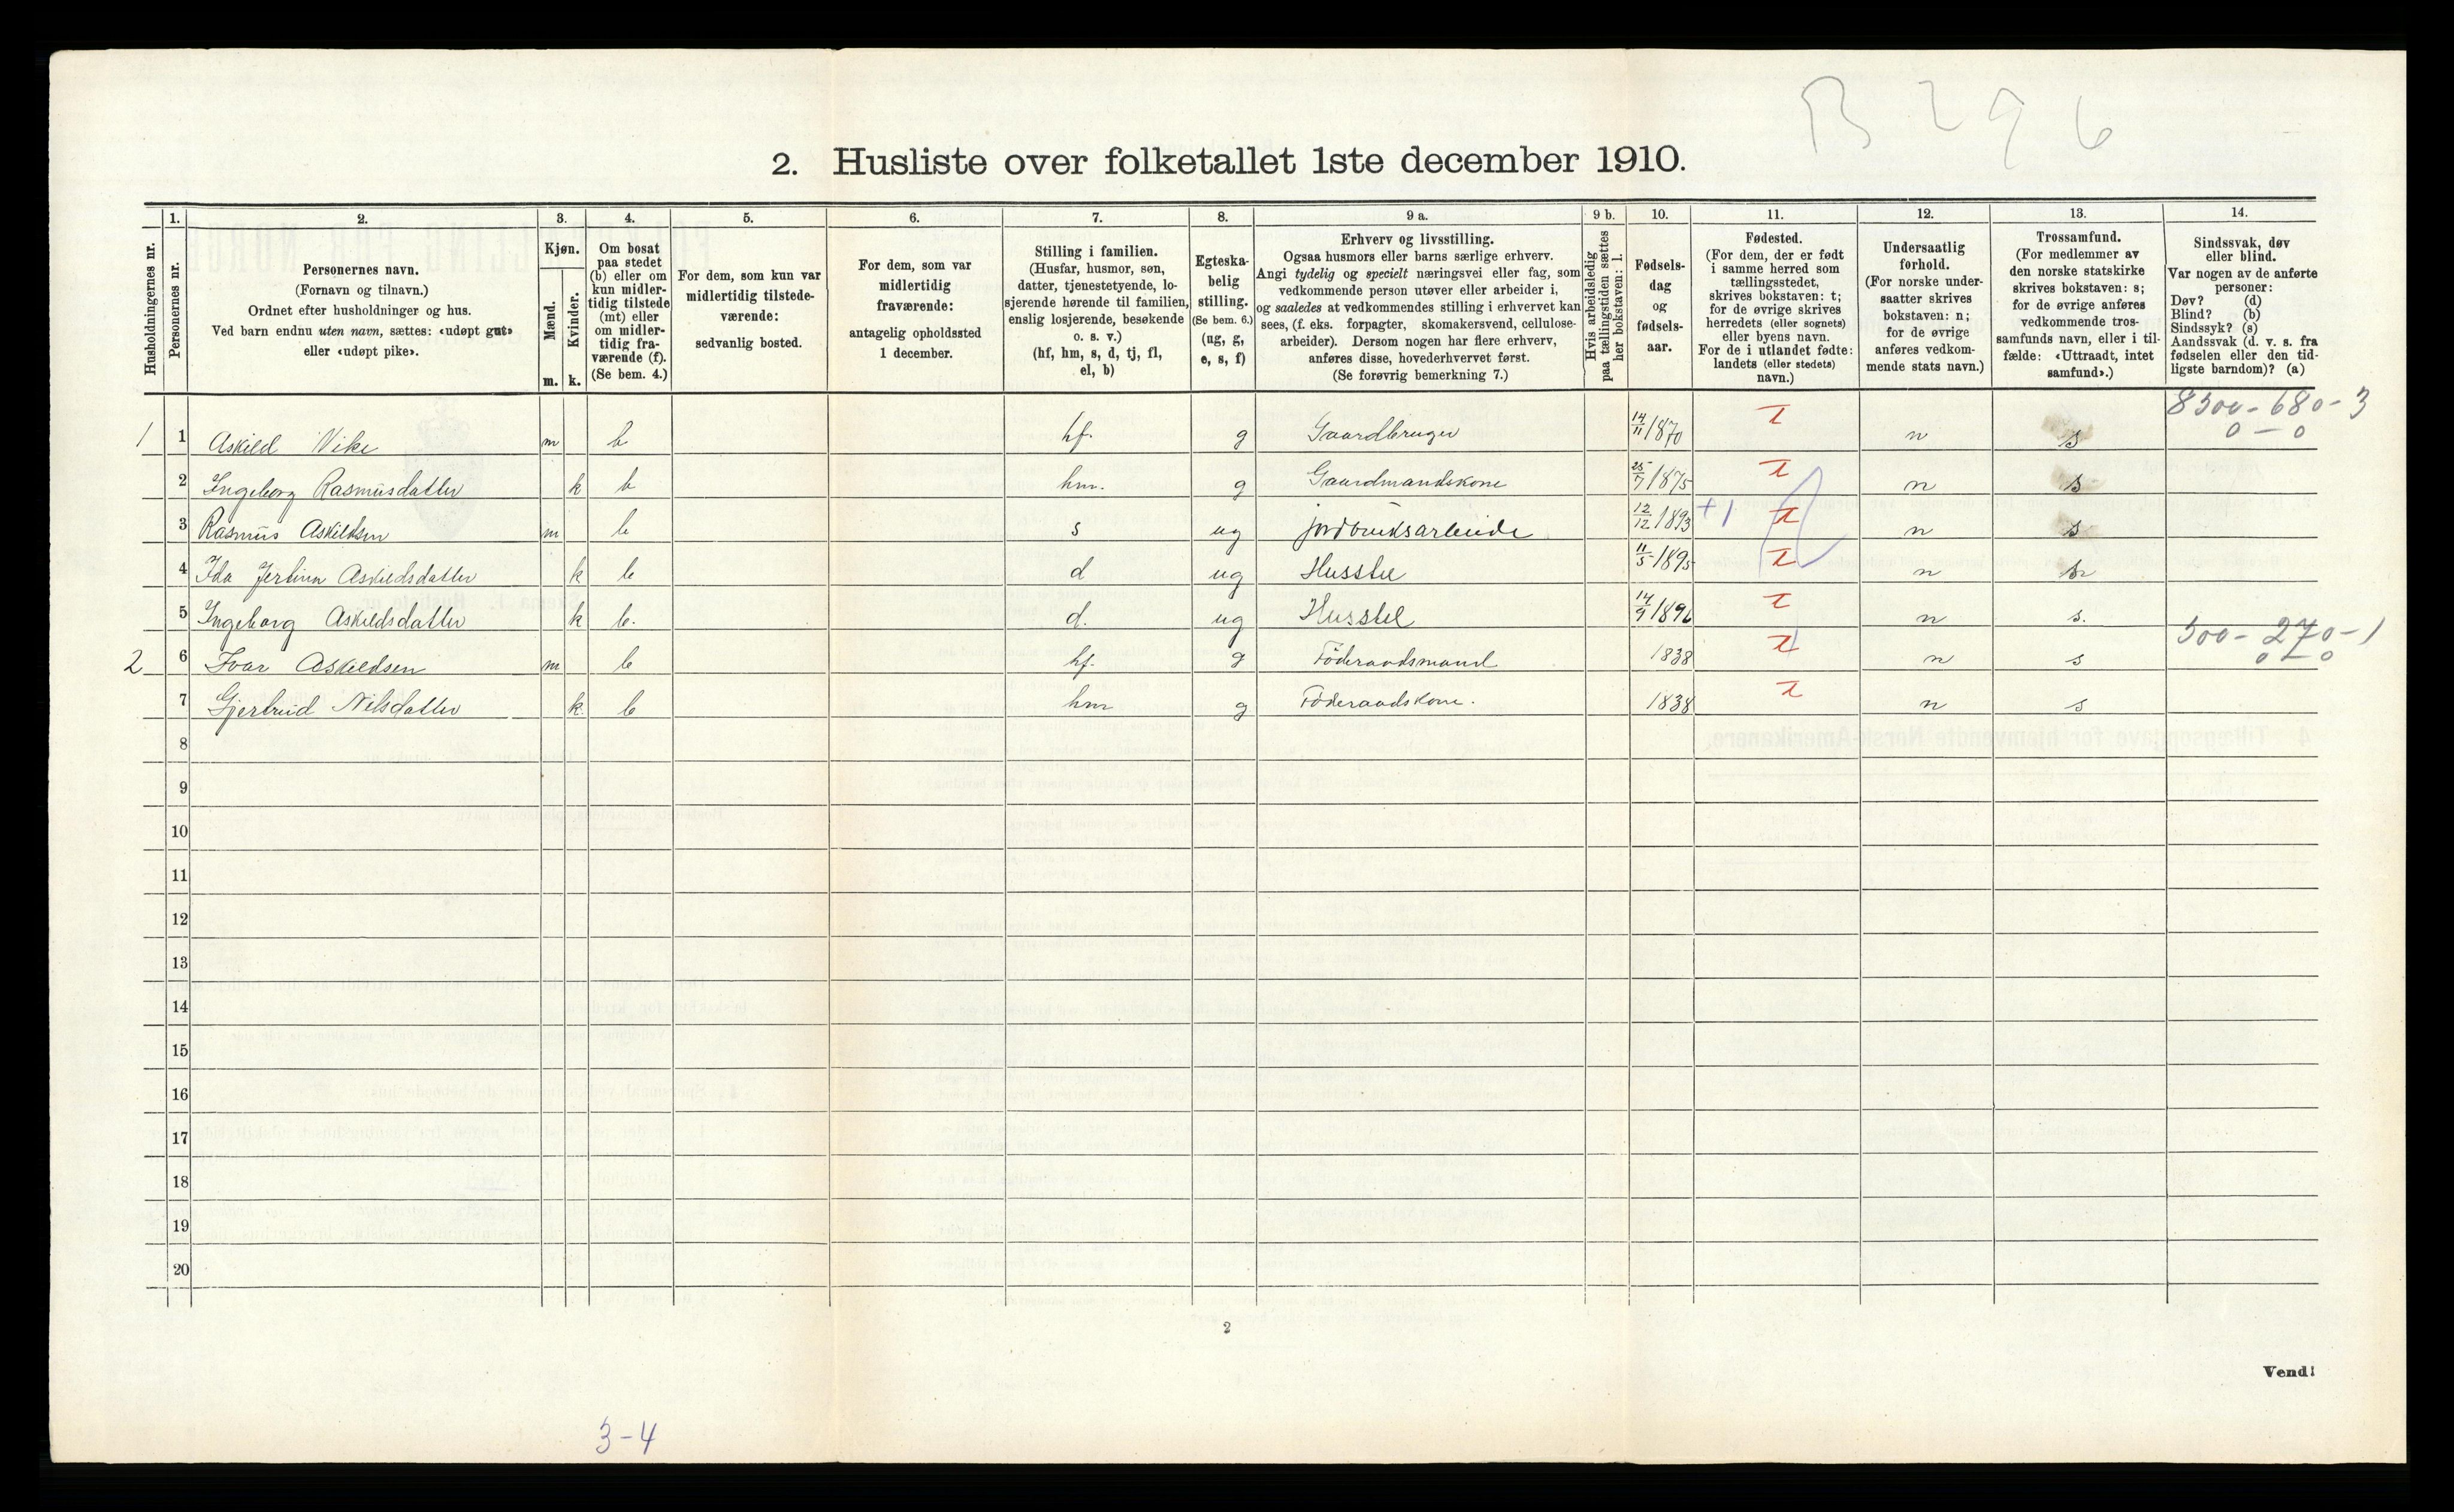 B 296
2. Husliste over folketallet 1ste december 1910.
Husholdningernes nr.
1.
Personernes nr.
2.
Personernes navn.
(Fornavn og tilnavn.)
Ordnet efter husholdninger og hus.
Ved barn endnu uten navn, sættes: «udøpt gut»
eller «udøpt pike».
3.
Kjøn.
Mænd.
Kvinder.
m. k.
4.
Om bosat
paa stedet
(b) eller om
kun midler-
tidig tilstede
(mt) eller
om midler-
tidig fra-
værende (f).
(Se bem. 4.)
5.
For dem, som kun var
midlertidig tilstede-
værende:
sedvanlig bosted.
6.
For dem, som var
midlertidig
fraværende:
antagelig opholdssted
1 december.
7.
Stilling i familien.
(Husfar, husmor, søn,
datter, tjenestetyende, lo-
sjerende hørende til familien,
enslig losjerende, besøkende
o. s. v.)
(hf, hm, s, d, tj, fl,
el, b)
8.
Egteska-
belig
stilling.
(Se bem. 6.)
(ug, g,
e, s, f)
9 a.
Erhverv og livsstilling.
Ogsaa husmors eller barns særlige erhverv.
Angi tydelig og specielt næringsvei eller fag, som
vedkommende person utøver eller arbeider i,
og saaledes at vedkommendes stilling i erhvervet kan
sees, (f. eks. forpagter, skomakersvend, cellulose-
arbeider). Dersom nogen har flere erhverv,
anføres disse, hovederhvervet først.
(Se forøvrig bemerkning 7.)
9 b.
Hvis arbeidsledig
paa tællingstiden sættes
her bokstaven: l.
10.
Fødsels-
dag
og
fødsels-
aar.
11.
Fødested.
(For dem, der er født
i samme herred som
tællingsstedet,
skrives bokstaven: t;
for de øvrige skrives
herredets (eller sognets)
eller byens navn.
For de i utlandet fødte:
landets (eller stedets)
navn.)
12.
Undersaatlig
forhold.
(For norske under-
saatter skrives
bokstaven: n;
for de øvrige
anføres vedkom-
mende stats navn.)
13.
Trossamfund.
(For medlemmer av
den norske statskirke
skrives bokstaven: s;
for de øvrige anføres
vedkommende tros-
samfunds navn, eller i til-
fælde: «Uttraadt, intet
samfund».)
14.
Sindssvak, døv
eller blind.
Var nogen av de anførte
personer:
Døv? (d)
Blind? (b)
Sindssyk? (s)
Aandssvak (d. v. s. fra
fødselen eller den tid-
ligste barndom)? (a)
8500 - 680 - 3
0 - 0
1 1 Askild Vike m b hf. g Gaardbruger 14/11 1870 t n s
2 Ingeborg Rasmusdatter k b hm. g Gaardmandskone 25/7 1875 t n s
3 Rasmus Askildsen m b s ug jordbruksarbeide 12/12 1893 +1 t n s
4 Ida Jertina Askildsdatter k b d ug Husstel 11/5 1895 t n s
5 Ingeborg Askildsdatter k b. d. ug Husstel 14/9 1896 t n s.
500 - 270 - 1
0 - 0
2 6 Ivar Askildsen m b hf. g Föderaadsmand 1838 t n s
7 Gjertrud Nilsdatter k. b hm g Föderaadskone. 1838 t n s
8
9
10
11
12
13
14
15
16
17
18
19
20
2
Vend!
3-4